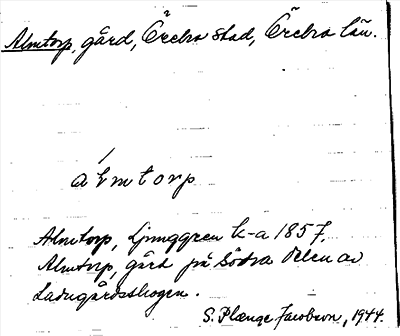 Almtorp, gård, Örebro stad, Örebro län.
álmtorp
Almtorp, Ljunggren k-a 1857.
Almtorp, gård på södra delen av
Ladugårdsskogen.
S. Plænge Jacobson, 1944.